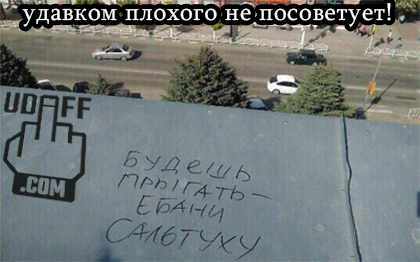 удавком плохого не посоветует!
UDAFF
.COM
БУДЕШЬ
ПРЫГАТЬ-
ЕБАНИ
САЛЬТУХУ